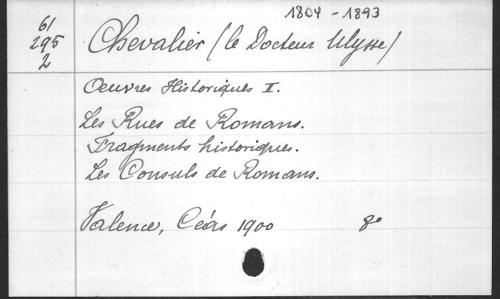 1804 - 1893
61
295
2
Chevalier (le Docteur Ulysse)
Oeuvres Historiques I.
Les Rues de Romans.
Fragments historiques.
Les Consuls de Romans.
Valence, Céas 1900 8°